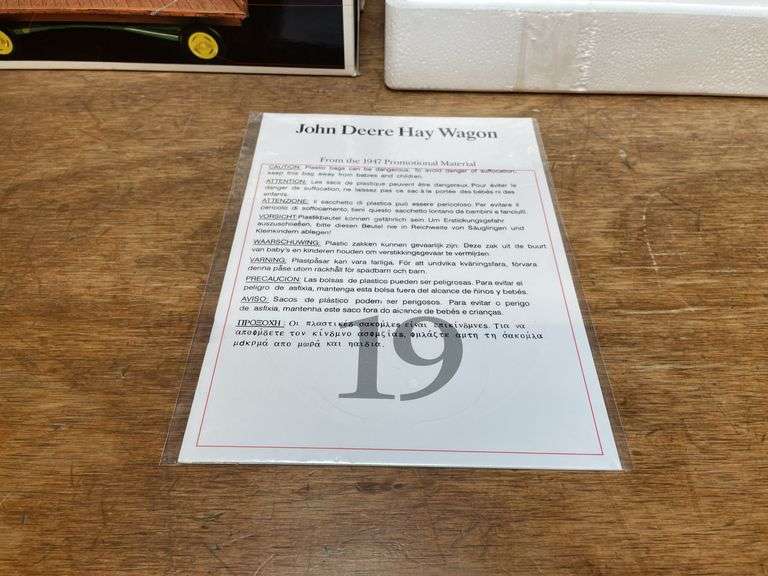 John Deere Hay Wagon
From the 1947 Promotional Material
CAUTION: Plastic bags can be dangerous. To avoid danger of suffocation,
keep this bag away from babies and children.
ATTENTION: Les sacs de plastique peuvent être dangereux. Pour éviter le
danger de suffocation, ne laissez pas ce sac à la portée des bébés ni des
enfants.
ATTENZIONE: Il sacchetto di plastica può essere pericoloso. Per evitare il
pericolo di soffocamento, tieni questo sacchetto lontano de bambini e fanciulli.
VORSICHT: Plastikbeutel können gefährlich sein. Um Erstickungsgefahr
auszuschließen, bitte diesen Beutel nie in Reichweite von Säuglingen und
Kleinkindern ablegen!
WAARSCHUWING: Plastic zakken kunnen gevaarlijk zijn. Deze zak uit de buurt
van baby's en kinderen houden om verstikkingsgevaar te vermijden.
VARNING: Plastpåsar kan vara farliga. För att undvika kvävningsfara, förvara
denna påse utom räckhåll för spädbarn och barn.
PRECAUCION: Las bolsas de plastico pueden ser peligrosas. Para evitar el
peligro de asfixia, mantenga esta bolsa fuera del alcance de niños y bebés.
AVISO: Sacos de plástico podem ser perigosos. Para evitar o perigo
de asfixia, mantenha este saco fora do alcance de bebês e crianças.
ΠΡΟΣΟΧΗ: Οι πλαστικές σακούλες είναι επικίνδυνες. Για να
αποφύγετε τον κίνδυνο ασφυξίας, φυλάξτε αυτή τη σακούλα
μακρυά απο μωρά και παιδιά.
19